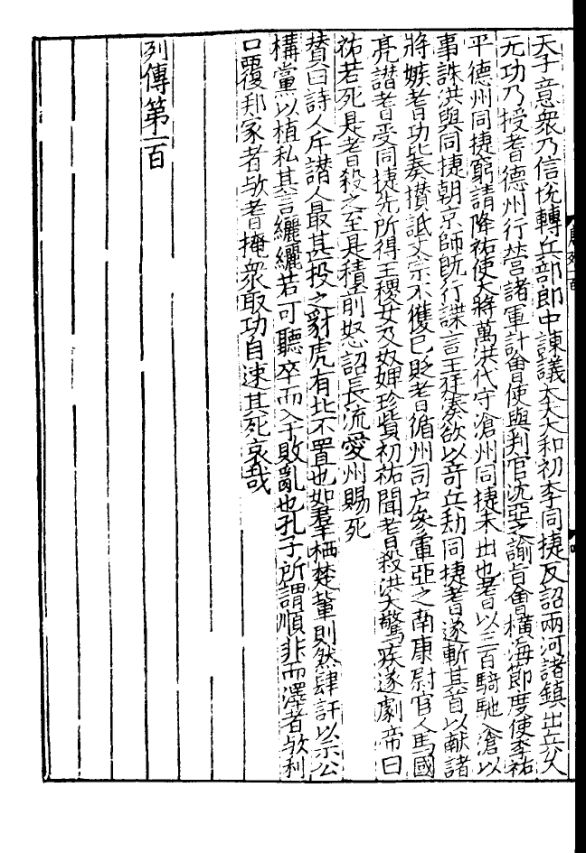 天子意衆乃信悅轉兵部郎中諫議大夫大和初李同捷反詔兩河諸鎮出兵久
无功乃授耆德州行營諸軍計會使與判官沈亞之諭旨會橫海節度使李祐
平德州同捷窮請降祐使大將萬洪代守滄州同捷未出也耆以三百騎馳入滄以
事誅洪與同捷朝京師旣行諜言王廷湊欲以奇兵劫同捷耆遂斬其首以献諸
將嫉耆功比奏攢詆文宗不獲已貶耆循州司戶參軍亞之南康尉宦人馬國
亮譖耆受同捷先所得王稷女及奴婢珍貲初祐聞耆殺洪大驚疾遂劇帝曰
祐若死是耆殺之至是積前怒詔長流愛州賜死
贊曰詩人斥譖人最甚投之豺虎有北不置也如羣栖楚輩則然肆訐以示公
構黨以植私其言纚纚若可聽卒而入于敗亂也孔子所謂順非而澤者歟利
口覆邦家者歟耆掩衆取功自速其死哀哉
列傳第一百